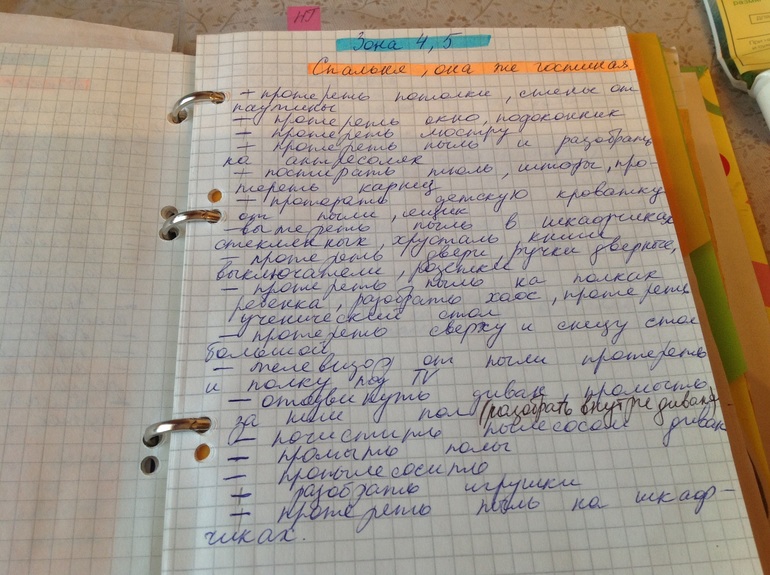 НГ
Зона 4, 5
Спальня, она же гостиная
+ протереть потолки, стены от
паутины
+ протереть окно, подоконник
— протереть люстру
+ протереть пыль и разобрать
на антресолях
+ постирать тюль, шторы, про-
тереть карниз
— протерать детскую кроватку
от пыли, ящик
— вытереть пыль в шкафчиках
стеклянных, хрусталь, книги
— протереть двери, ручки дверные,
выключатели, розетки
— протереть пыль на полках
ребенка, разобрать хаос, протереть
ученический стол
— протереть сверху и снизу стол
большой
— телевизор от пыли протереть
и полку под TV
— отодвинуть диван, промыть
за ним пол (разобрать внутри дивана)
— почистить пылесосом диван
— промыть полы
— пропылесосить
+ разобрать игрушки
+ протереть пыль на шкаф-
чиках.